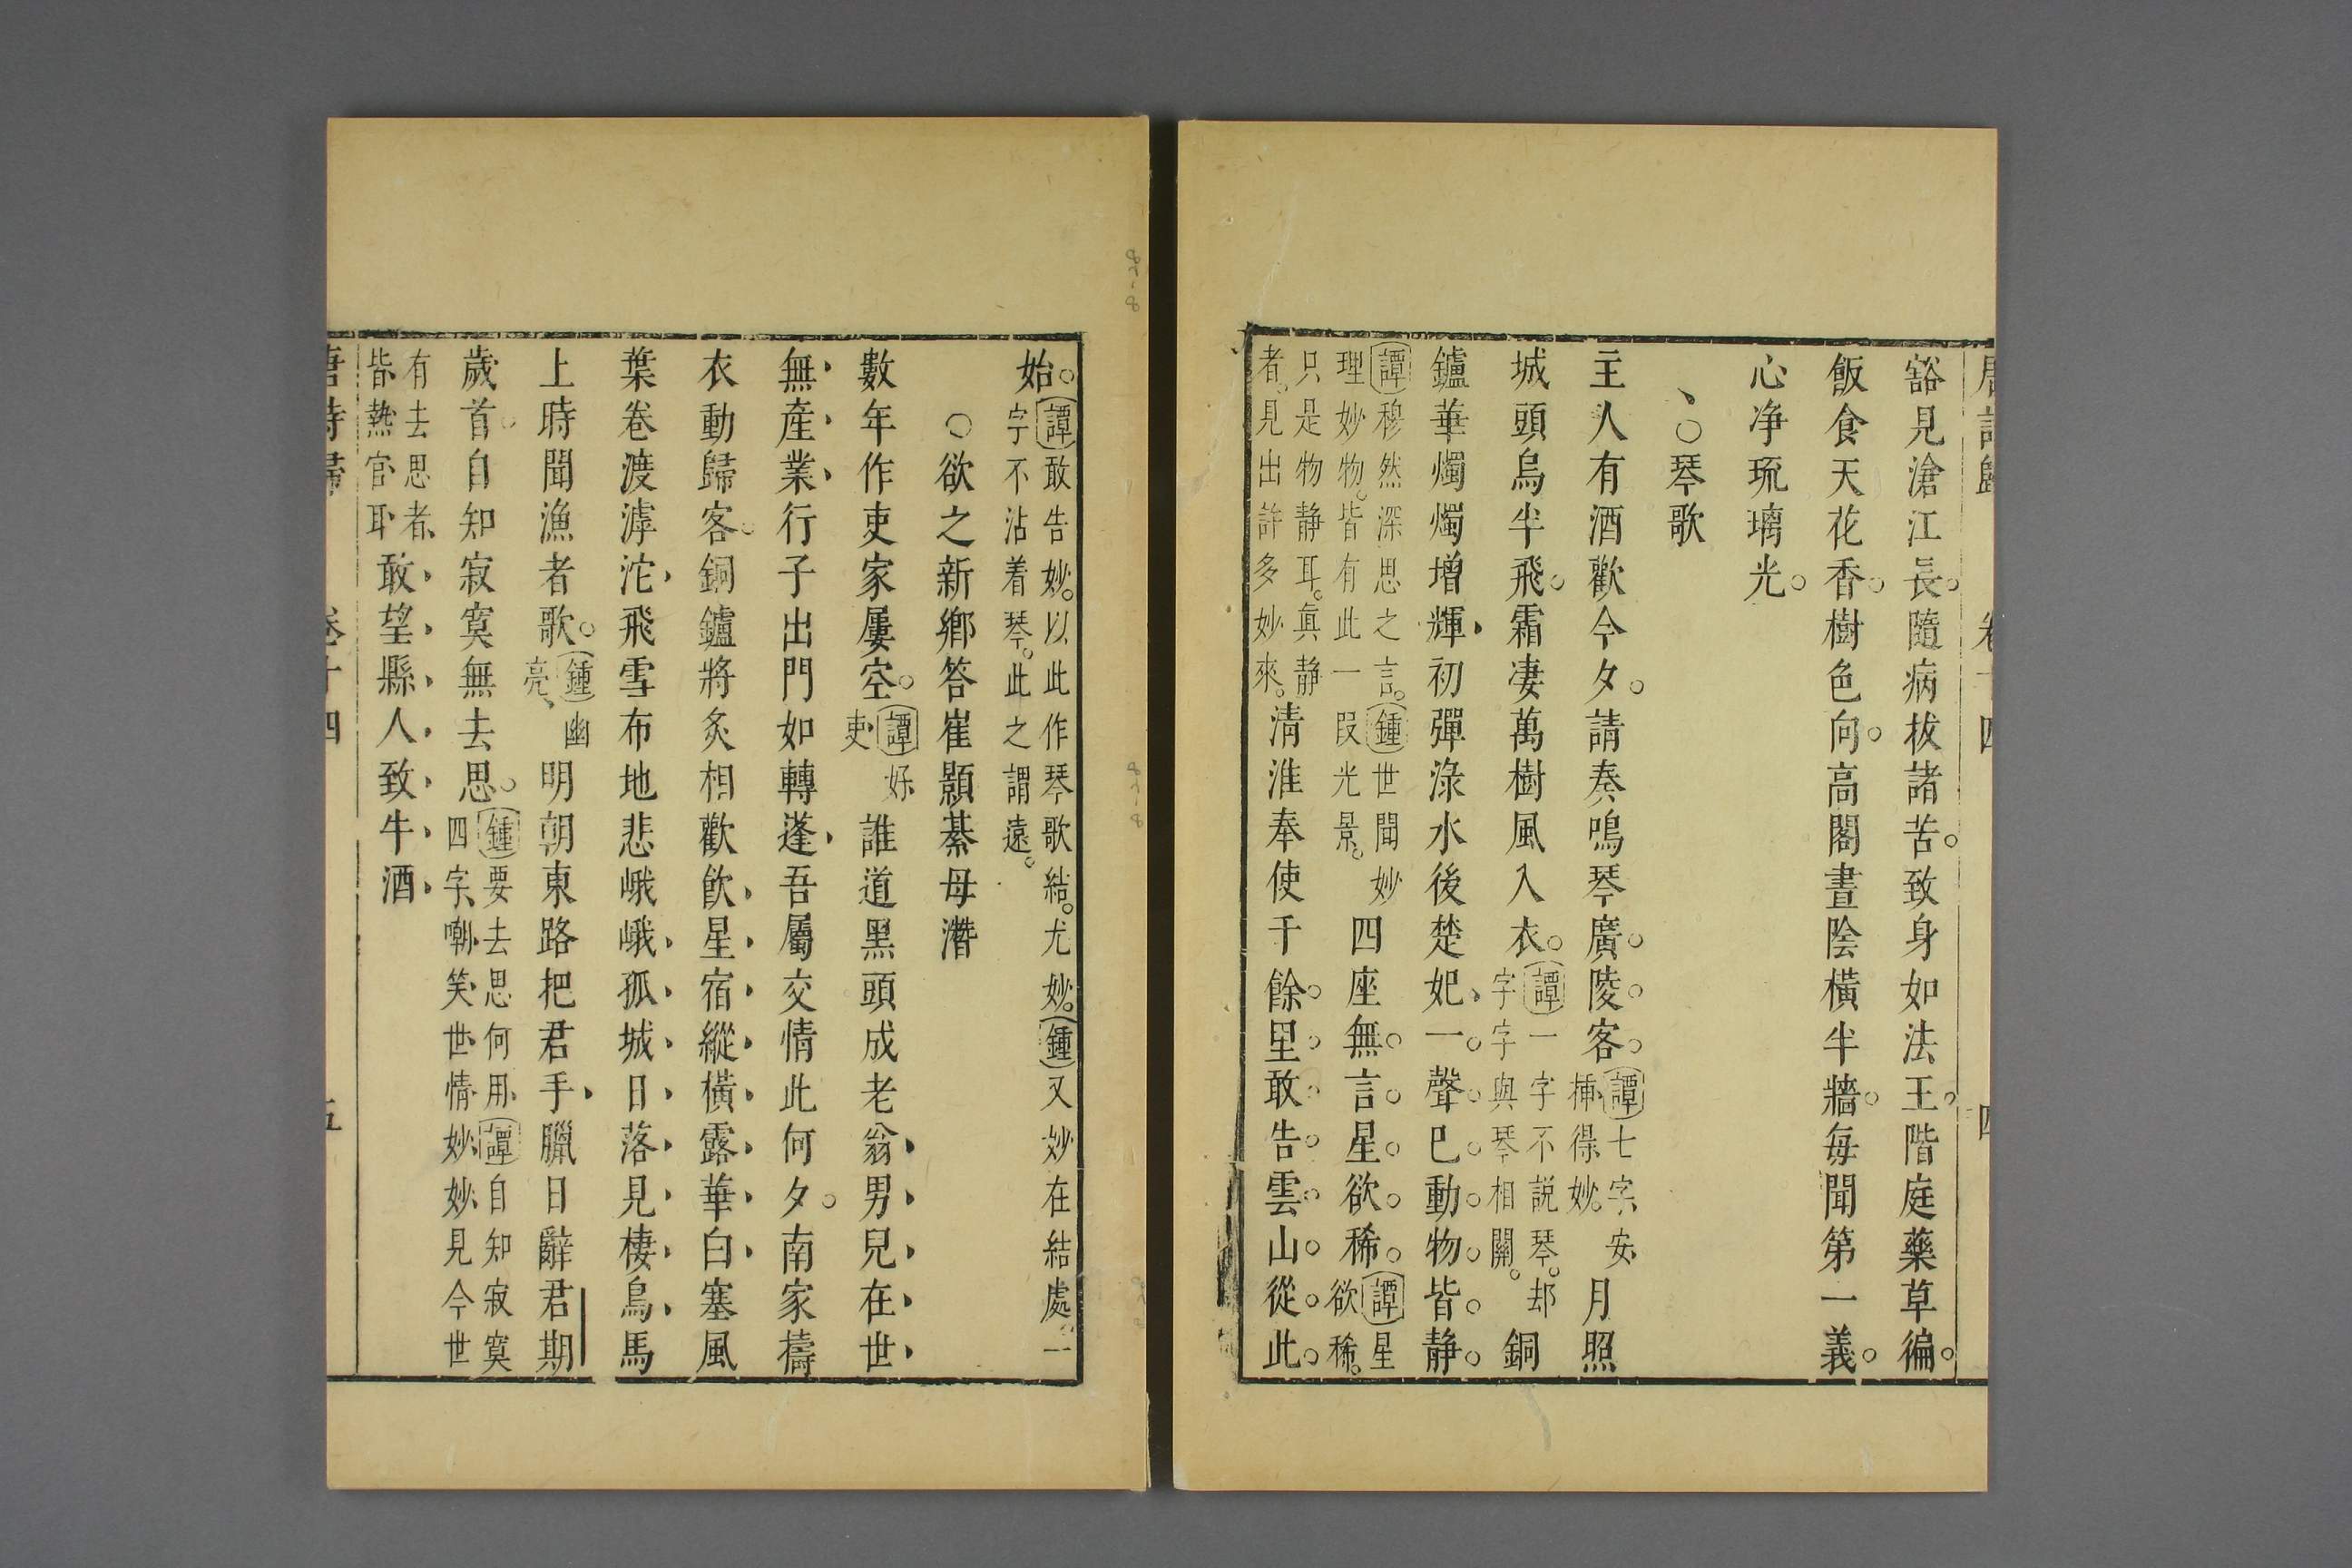 唐詩歸　卷十四　四
豁見滄江長隨病拔諸苦致身如法王階庭藥草徧
飯食天花香樹色向高閣晝陰橫半牆每聞第一義
心净琉璃光
、○琴歌
主人有酒歡今夕請奏鳴琴廣陵客譚七字安揷得妙月照
城頭烏半飛霜凄萬樹風入衣譚一字不説琴却字字與琴相關銅
鑪華燭燭增輝初彈淥水後楚妃一聲已動物皆静
譚穆然深思之言鍾世間妙理妙物皆有此一段光景四座無言星欲稀譚星欲稀
只是物静耳真静者見出許多妙來清淮奉使千餘里敢告雲山從此
始譚敢告妙以此作琴歌結尤妙鍾又妙在結處一字不沾着琴此之謂遠
○欲之新鄉答崔顥綦母濳
數年作吏家屢空譚好吏誰道黑頭成老翁男兒在世
無產業行子出門如轉蓬吾屬交情此何夕南家擣
衣動歸客銅鑪將炙相歡飲星宿縱橫露華白塞風
葉卷渡滹沱飛雪布地悲峨峨孤城日落見棲烏馬
上時聞漁者歌鍾幽亮明朝東路把君手臘日辭君期
歲首自知寂寞無去思鍾要去思何用譚自知寂寞四字嘲笑世情妙妙見今世
有去思者皆熱官耳敢望縣人致牛酒
唐詩歸　卷十四　五